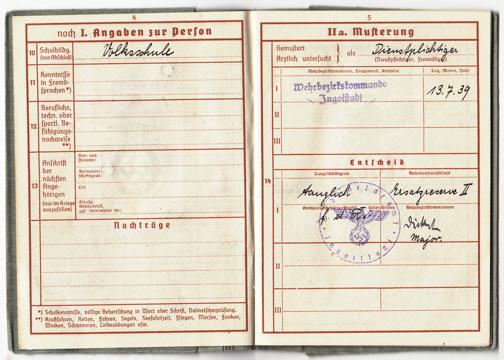 4
noch I. Angaben zur Person
10 Schulbildg. (nur Abschluß)
Volksschule
11 Kenntnisse in Fremdsprachen *)
12 Berufliche, techn. oder sportl. Befähigungsnachweise **)
13 Anschrift der nächsten Angehörigen
(nur im Kriege auszufüllen)
Vor- und Zuname:
Ort
Straße,
Nachträge
*) Schulkenntnisse, völlige Beherrschung in Wort oder Schrift, Dolmetscherprüfung.
**) Kraftfahren, Reiten, Fahren, Segeln, Seefahrtzeit, Fliegen, Morsen, Funken,
Winken, Schwimmen, Leibesübungen usw.
5
IIa. Musterung
Gemustert
Ärztlich untersucht
als
Dienstpflichtiger
(Dienstpflichtiger, Freiwilliger)
Tag, Monat, Jahr
I
Wehrbezirkskommando
Ingolstadt
13.7.39
II
III
Entscheid
14
Tauglichkeitsgrad
tauglich
Ersatzreserve II
I
Major.
II
III